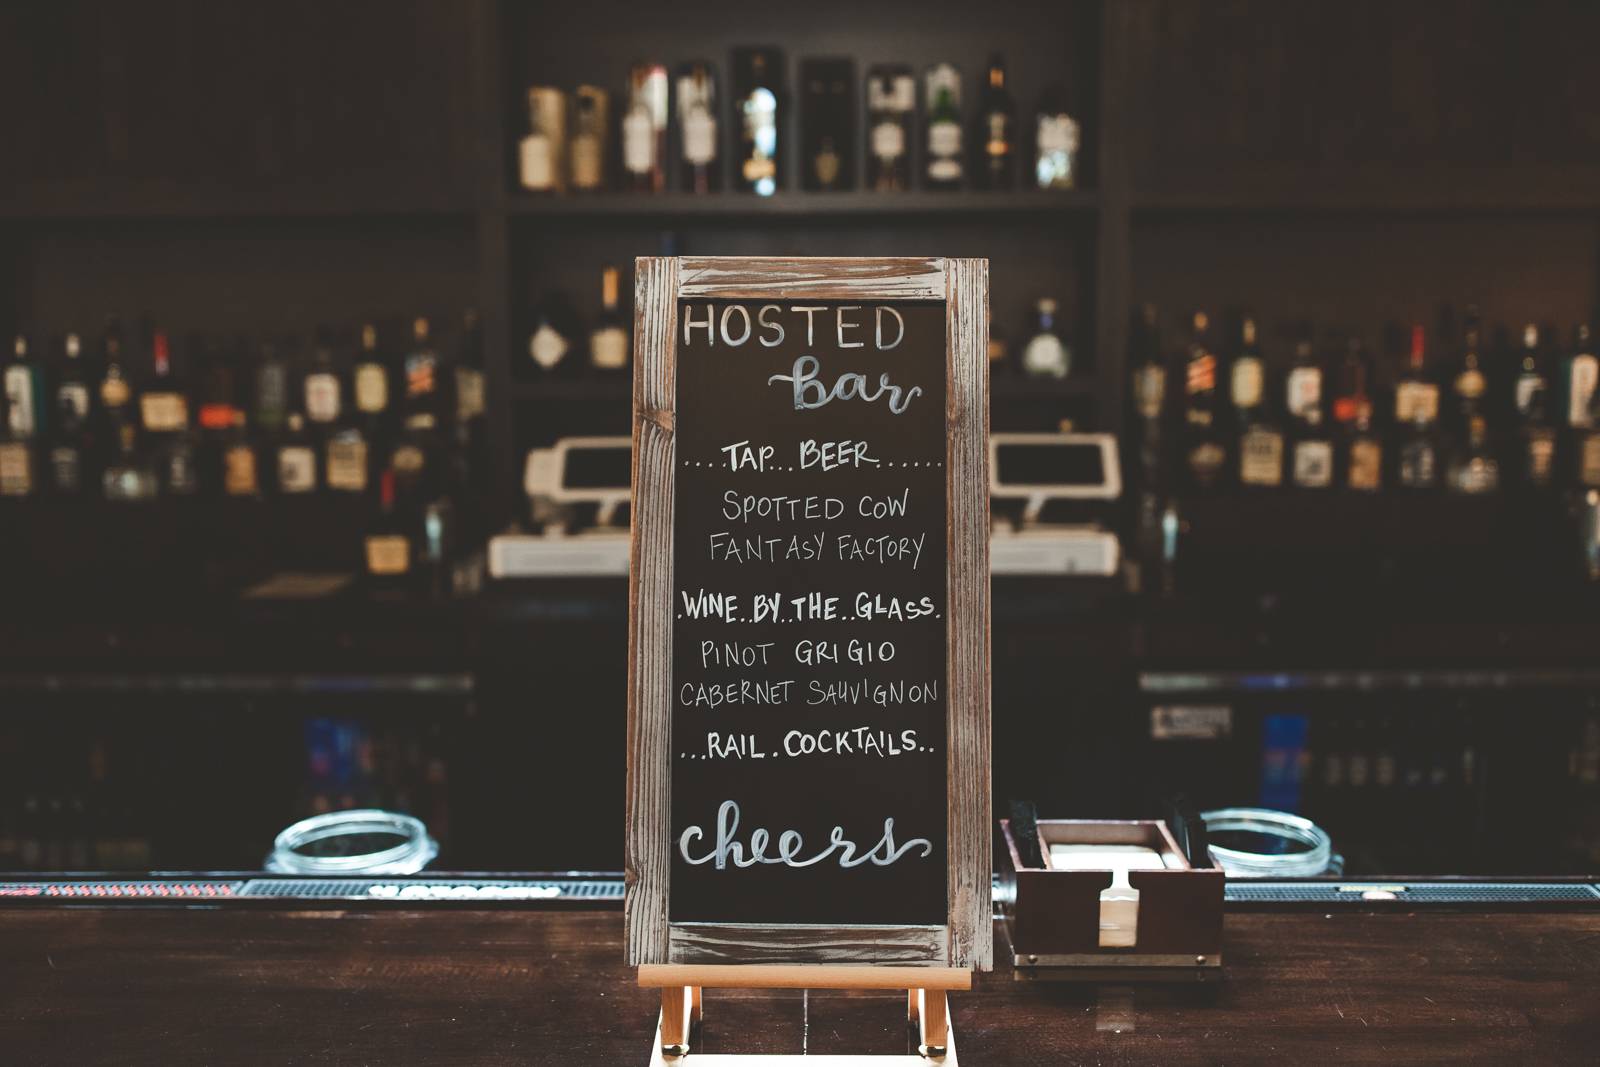 HOSTED
bar
....TAP...BEER......
SPOTTED COW
FANTASY FACTORY
.WINE..BY..THE..GLASS.
PINOT GRIGIO
CABERNET SAUVIGNON
...RAIL.COCKTAILS..
cheers